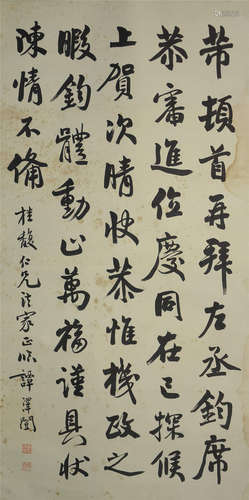 芾頓首再拜左丞鈞席
恭審進位慶同在已探候
上賀次晴快恭惟機政之
暇鈞體動止萬福謹具狀
陳情不備
桂馥仁兄法家正腕 譚澤闓